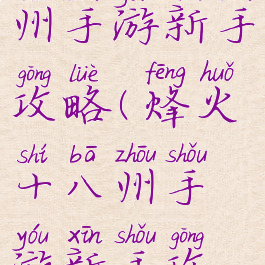 州手游新手
gōng lüè fēng huǒ
攻略(烽火
shí bā zhōu shǒu
十八州手
yóu xīn shǒu gōng
游新手攻